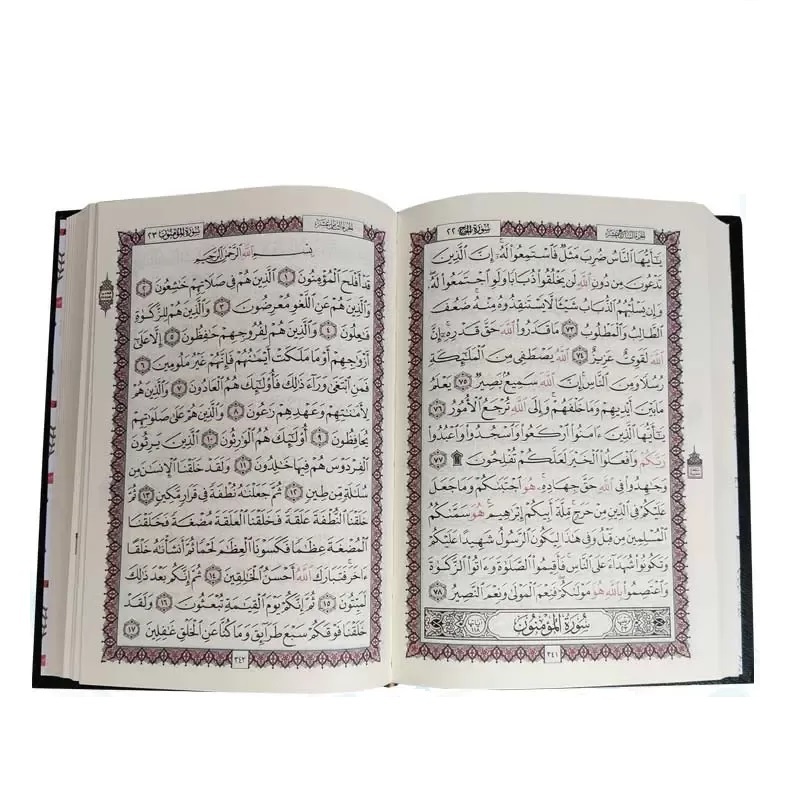 الجزء السابع عشر
سورة الحج ٢٢
يَـٰٓأَيُّهَا ٱلنَّاسُ ضُرِبَ مَثَلٌ فَٱسْتَمِعُوا۟ لَهُۥٓ ۚ إِنَّ ٱلَّذِينَ
تَدْعُونَ مِن دُونِ ٱللَّهِ لَن يَخْلُقُوا۟ ذُبَابًا وَلَوِ ٱجْتَمَعُوا۟ لَهُۥ ۖ
وَإِن يَسْلُبْهُمُ ٱلذُّبَابُ شَيْـًٔا لَّا يَسْتَنقِذُوهُ مِنْهُ ۚ ضَعُفَ
ٱلطَّالِبُ وَٱلْمَطْلُوبُ ٧٣ مَا قَدَرُوا۟ ٱللَّهَ حَقَّ قَدْرِهِۦٓ ۗ إِنَّ
ٱللَّهَ لَقَوِىٌّ عَزِيزٌ ٧٤ ٱللَّهُ يَصْطَفِى مِنَ ٱلْمَلَـٰٓئِكَةِ
رُسُلًا وَمِنَ ٱلنَّاسِ ۚ إِنَّ ٱللَّهَ سَمِيعٌۢ بَصِيرٌ ٧٥ يَعْلَمُ
مَا بَيْنَ أَيْدِيهِمْ وَمَا خَلْفَهُمْ ۗ وَإِلَى ٱللَّهِ تُرْجَعُ ٱلْأُمُورُ ٧٦
يَـٰٓأَيُّهَا ٱلَّذِينَ ءَامَنُوا۟ ٱرْكَعُوا۟ وَٱسْجُدُوا۟ وَٱعْبُدُوا۟
رَبَّكُمْ وَٱفْعَلُوا۟ ٱلْخَيْرَ لَعَلَّكُمْ تُفْلِحُونَ ۩ ٧٧
وَجَـٰهِدُوا۟ فِى ٱللَّهِ حَقَّ جِهَادِهِۦ ۚ هُوَ ٱجْتَبَىٰكُمْ وَمَا جَعَلَ
عَلَيْكُمْ فِى ٱلدِّينِ مِنْ حَرَجٍ ۚ مِّلَّةَ أَبِيكُمْ إِبْرَٰهِيمَ ۚ هُوَ سَمَّىٰكُمُ
ٱلْمُسْلِمِينَ مِن قَبْلُ وَفِى هَـٰذَا لِيَكُونَ ٱلرَّسُولُ شَهِيدًا عَلَيْكُمْ
وَتَكُونُوا۟ شُهَدَآءَ عَلَى ٱلنَّاسِ ۚ فَأَقِيمُوا۟ ٱلصَّلَوٰةَ وَءَاتُوا۟ ٱلزَّكَوٰةَ
وَٱعْتَصِمُوا۟ بِٱللَّهِ هُوَ مَوْلَىٰكُمْ ۖ فَنِعْمَ ٱلْمَوْلَىٰ وَنِعْمَ ٱلنَّصِيرُ ٧٨
سُورَةُ الْمُؤْمِنُونَ
٣٤١
الجزء الثامن عشر
سورة المؤمنون ٢٣
بِسْمِ ٱللَّهِ ٱلرَّحْمَـٰنِ ٱلرَّحِيمِ
قَدْ أَفْلَحَ ٱلْمُؤْمِنُونَ ١ ٱلَّذِينَ هُمْ فِى صَلَاتِهِمْ خَـٰشِعُونَ ٢
وَٱلَّذِينَ هُمْ عَنِ ٱللَّغْوِ مُعْرِضُونَ ٣ وَٱلَّذِينَ هُمْ لِلزَّكَوٰةِ
فَـٰعِلُونَ ٤ وَٱلَّذِينَ هُمْ لِفُرُوجِهِمْ حَـٰفِظُونَ ٥ إِلَّا عَلَىٰٓ
أَزْوَٰجِهِمْ أَوْ مَا مَلَكَتْ أَيْمَـٰنُهُمْ فَإِنَّهُمْ غَيْرُ مَلُومِينَ ٦
فَمَنِ ٱبْتَغَىٰ وَرَآءَ ذَٰلِكَ فَأُو۟لَـٰٓئِكَ هُمُ ٱلْعَادُونَ ٧ وَٱلَّذِينَ هُمْ
لِأَمَـٰنَـٰتِهِمْ وَعَهْدِهِمْ رَٰعُونَ ٨ وَٱلَّذِينَ هُمْ عَلَىٰ صَلَوَٰتِهِمْ
يُحَافِظُونَ ٩ أُو۟لَـٰٓئِكَ هُمُ ٱلْوَٰرِثُونَ ١٠ ٱلَّذِينَ يَرِثُونَ
ٱلْفِرْدَوْسَ هُمْ فِيهَا خَـٰلِدُونَ ١١ وَلَقَدْ خَلَقْنَا ٱلْإِنسَـٰنَ مِن
سُلَـٰلَةٍ مِّن طِينٍ ١٢ ثُمَّ جَعَلْنَـٰهُ نُطْفَةً فِى قَرَارٍ مَّكِينٍ ١٣ ثُمَّ
خَلَقْنَا ٱلنُّطْفَةَ عَلَقَةً فَخَلَقْنَا ٱلْعَلَقَةَ مُضْغَةً فَخَلَقْنَا
ٱلْمُضْغَةَ عِظَـٰمًا فَكَسَوْنَا ٱلْعِظَـٰمَ لَحْمًا ثُمَّ أَنشَأْنَـٰهُ خَلْقًا
ءَاخَرَ ۚ فَتَبَارَكَ ٱللَّهُ أَحْسَنُ ٱلْخَـٰلِقِينَ ١٤ ثُمَّ إِنَّكُم بَعْدَ ذَٰلِكَ
لَمَيِّتُونَ ١٥ ثُمَّ إِنَّكُمْ يَوْمَ ٱلْقِيَـٰمَةِ تُبْعَثُونَ ١٦ وَلَقَدْ
خَلَقْنَا فَوْقَكُمْ سَبْعَ طَرَآئِقَ وَمَا كُنَّا عَنِ ٱلْخَلْقِ غَـٰفِلِينَ ١٧
٣٤٢